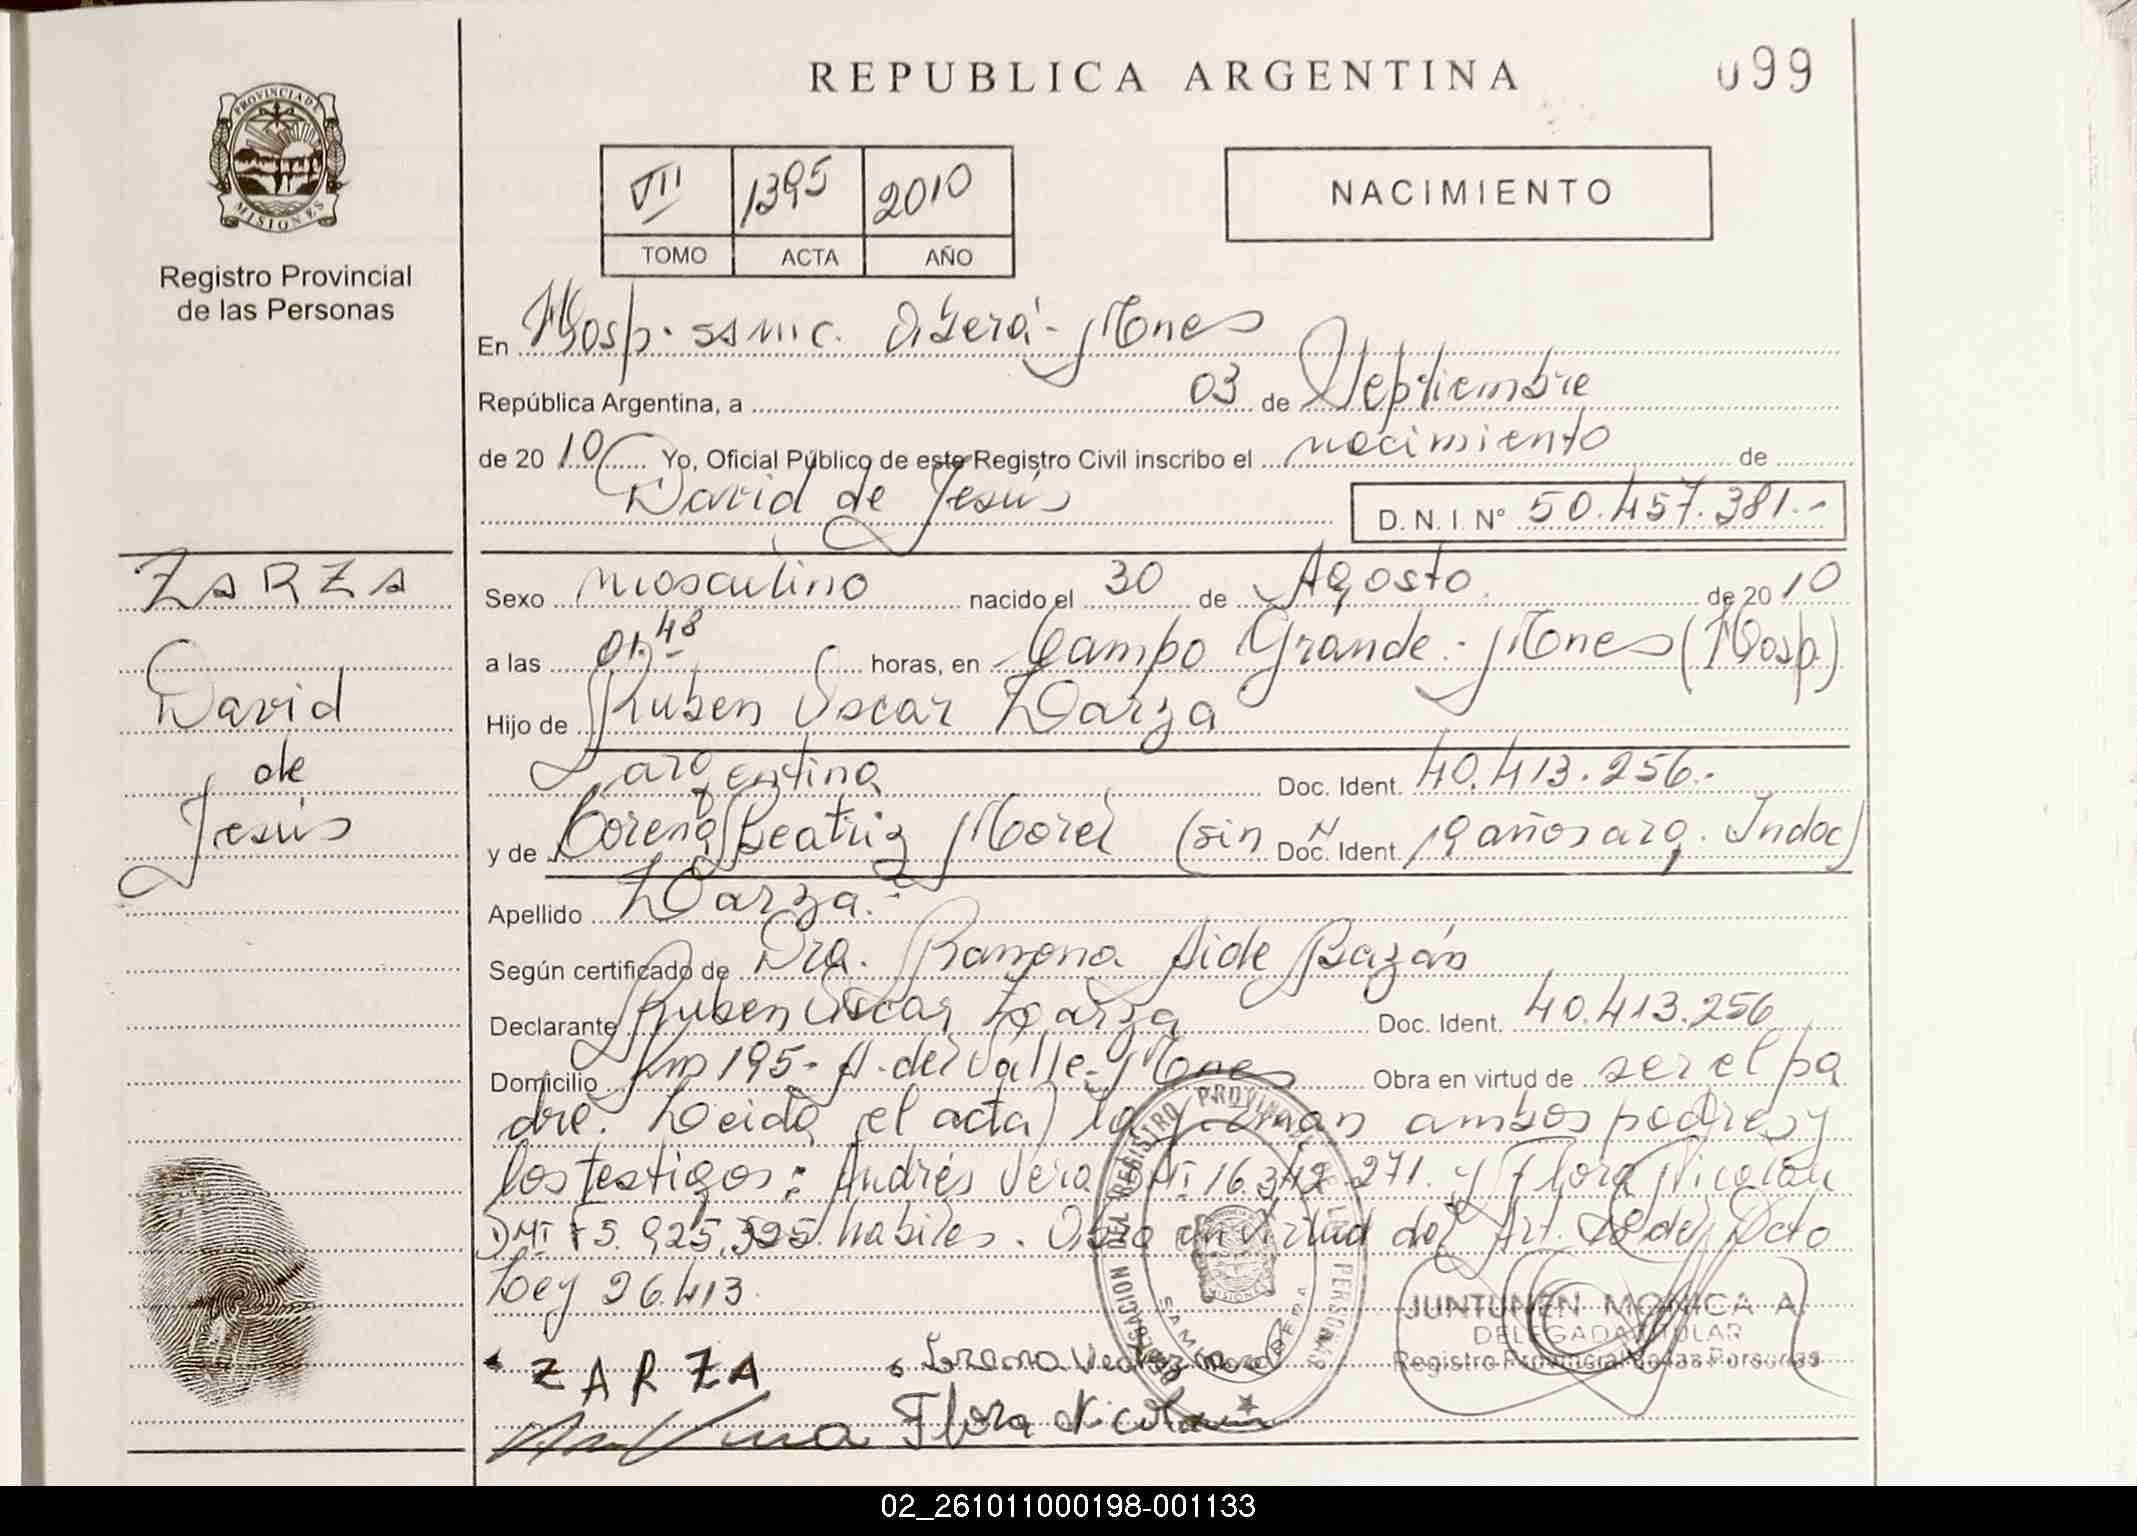 REPUBLICA ARGENTINA
099
PROVINCIA DE
MISIONES
Registro Provincial
de las Personas
VII 1395 2010
TOMO ACTA AÑO
NACIMIENTO
En Hosp. SAMIC. Oberá - Mnes
República Argentina, a 03 de Septiembre
de 20 10 Yo, Oficial Público de este Registro Civil inscribo el nacimiento de
David de Jesús
D. N. I. N° 50.457.381.-
ZARZA
David
de
Jesús
Sexo Masculino nacido el 30 de Agosto de 20 10
a las 01,48 horas, en Campo Grande - Mnes (Hosp.)
Hijo de Ruben Oscar Zarza
argentina Doc. Ident. 40.413.256.-
y de Lorena Beatriz Morel (sin Doc. Ident. 19 años arg. Indoc)
Apellido Zarza.-
Según certificado de Dra. Ramona Aide Bazán
Declarante Ruben Oscar Zarza Doc. Ident. 40.413.256
Domicilio Km 195 - A. del Valle - Mnes Obra en virtud de ser el pa
dre. Leida el acta, la firman ambos padres y
los testigos: Andrés Vera 16.342.271. y Flora Nicolau
F5.925.395 habiles. Obra en virtud del Art. 28 del Dcto
Ley 26.413.
DELEGACION DEL REGISTRO PROVINCIAL DE LAS PERSONAS
MISIONES
JUNTUNEN MONICA A.
DELEGADA TITULAR
Registro Provincial de las Personas
ZARZA
Flora Nicolau
02_261011000198-001133